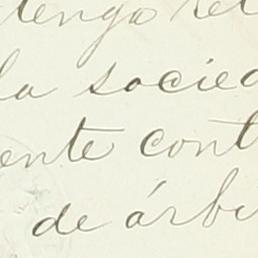 tengo
la socied
ente cont
de árbi